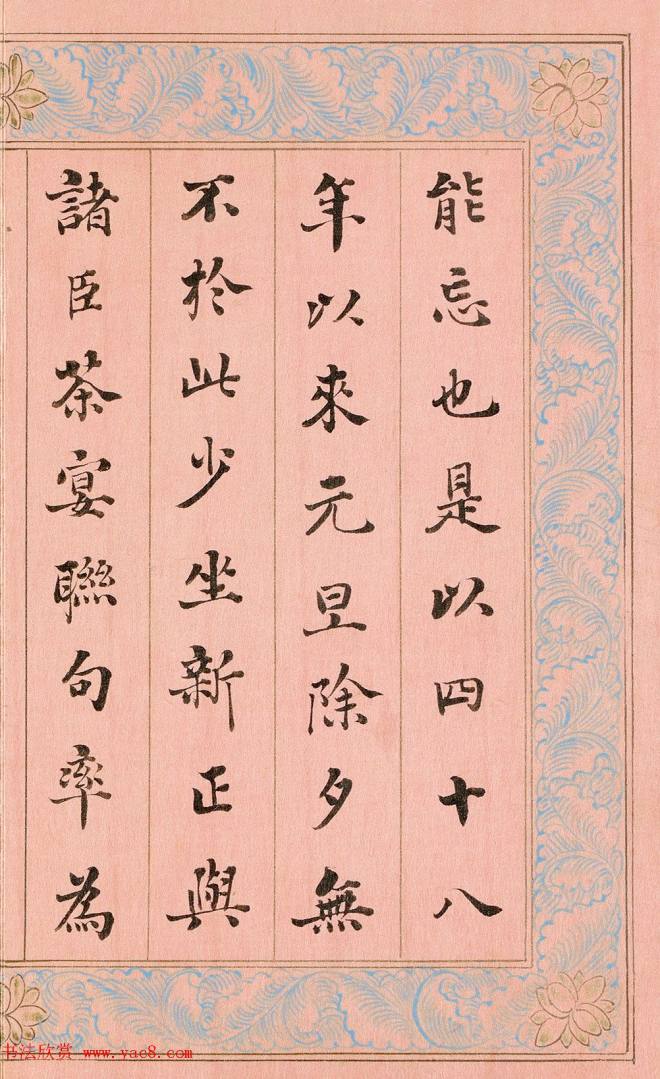 能忘也是以四十八
年以來元旦除夕無
不於此少坐新正與
諸臣茶宴聯句率為
书法欣赏 www.yac8.com